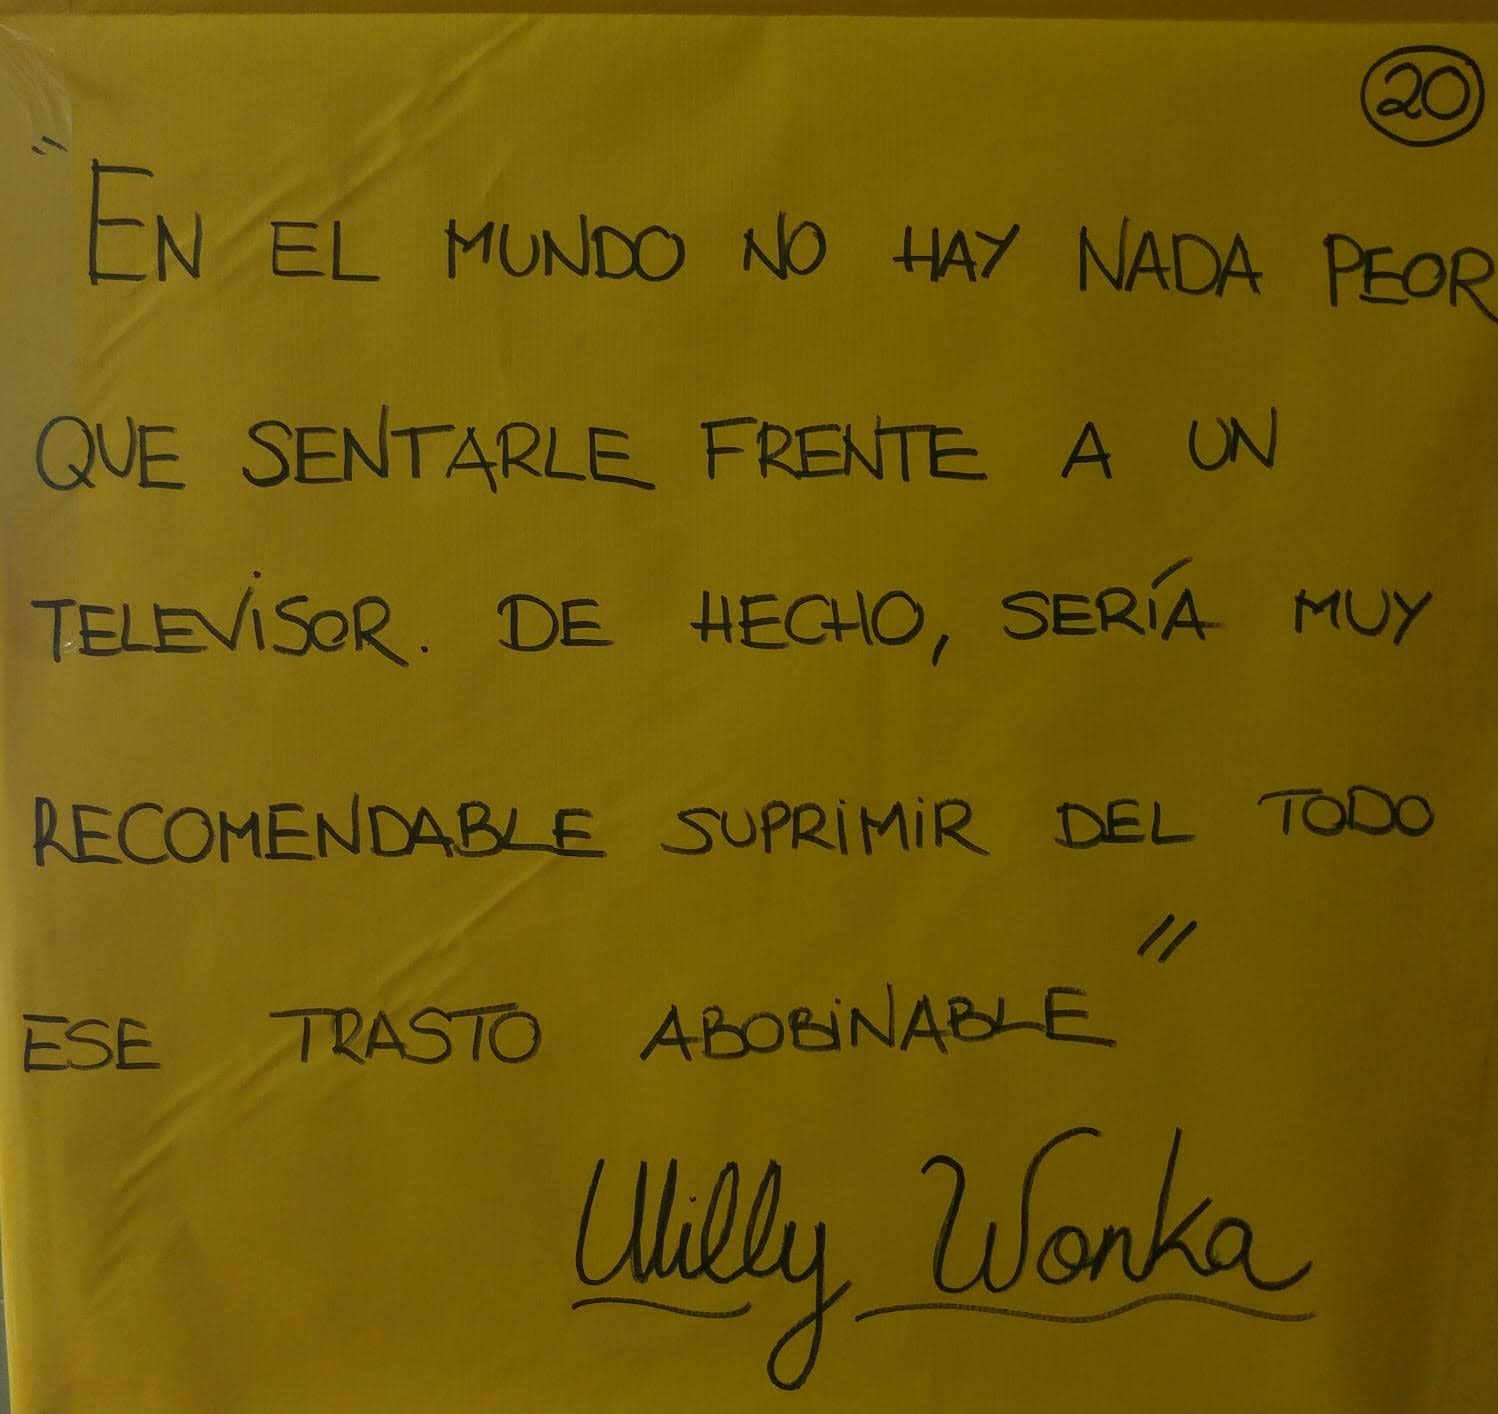 20
"EN EL MUNDO NO HAY NADA PEOR
QUE SENTARLE FRENTE A UN
TELEVISOR. DE HECHO, SERÍA MUY
RECOMENDABLE SUPRIMIR DEL TODO
ESE TRASTO ABOBINABLE"
Willy Wonka